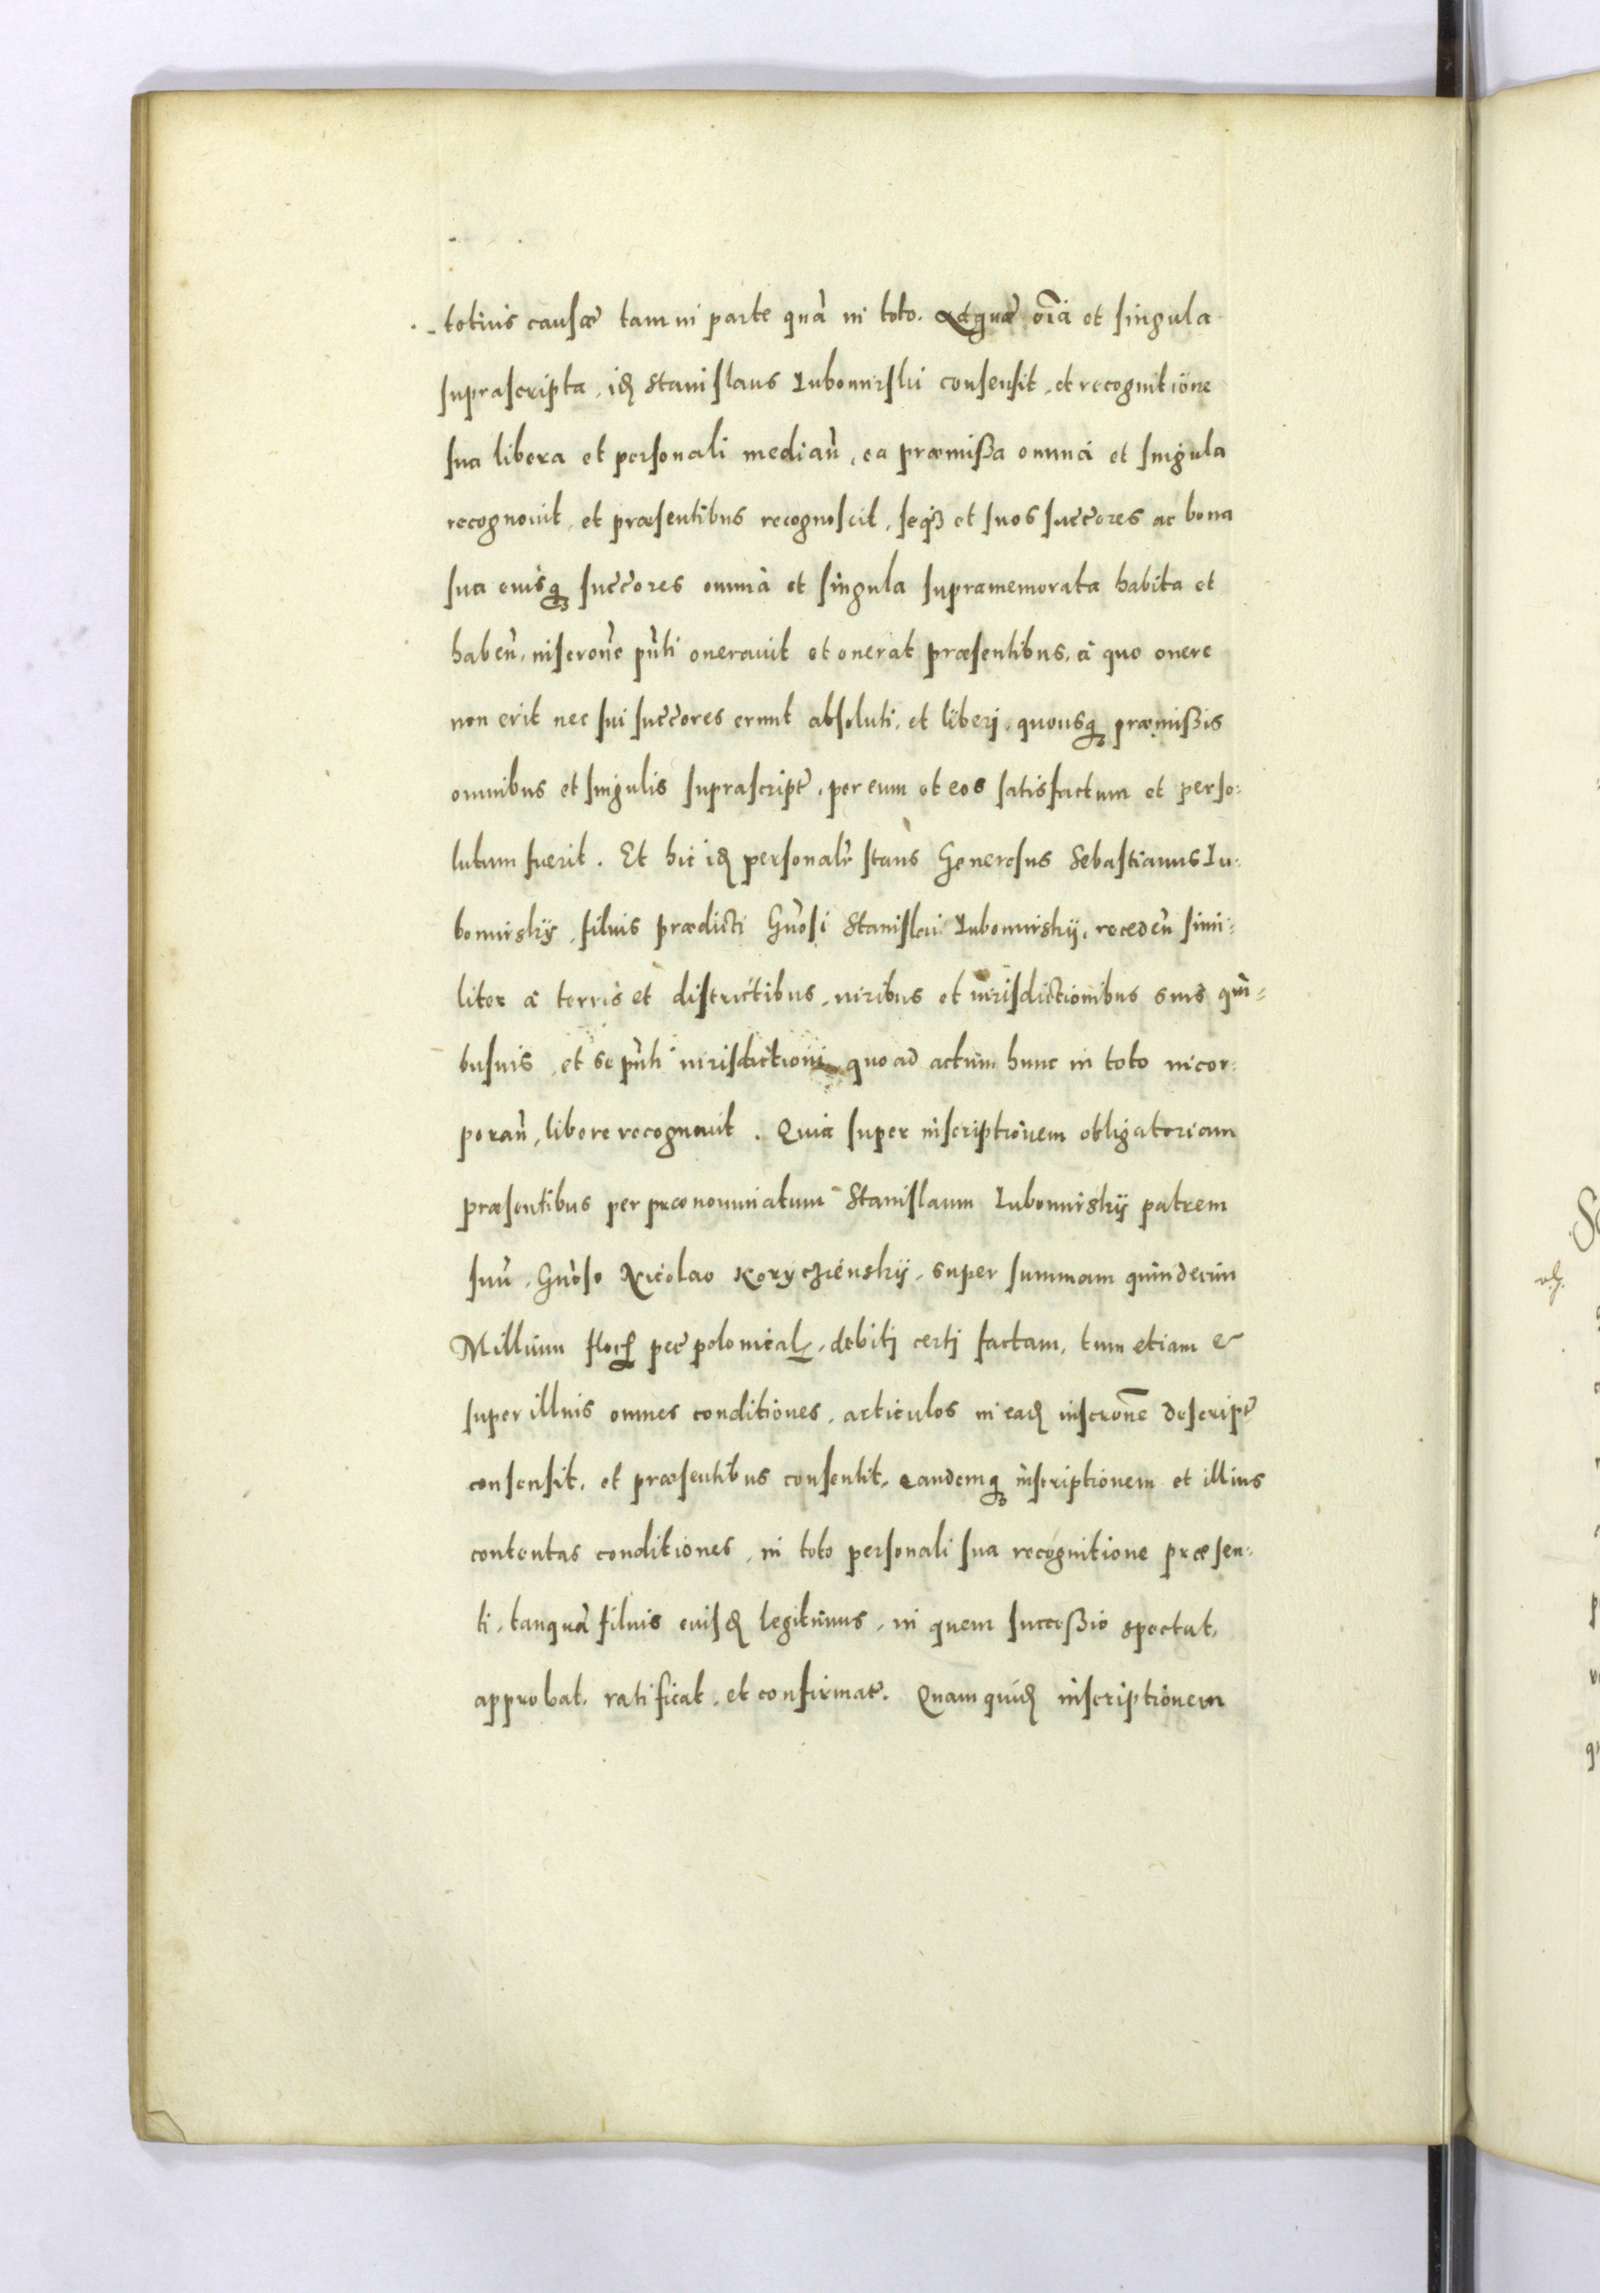 totius causæ tam in parte quã in toto. Ad quæ oĩa et singula
suprascripta, idẽ Stanislaus Lubomirski consensit, et recognitione
sua libera et personali median̄, ea præmißa omnia et singula
recognouit, et præsentibus recognoscit, seqʒ et suos succ̄ores ac bona
sua eiusqʒ succ̄ores omnia et singula supramemorata habita et
haben̄, inscr̄one pñti onerauit et onerat præsentibus, à quo onere
non erit nec sui succ̄ores erunt absoluti, et liberj, quousqʒ præmißis
omnibus et singulis suprascript̄, per eum et eos satisfactum et perso-
lutum fuerit. Et hic idẽ personalr̄ stans Generosus Sebastianus Lu-
bomirskÿ, filius prædicti Gñosi Stanislai Lubomirskÿ, receden̄ simi-
liter à terris et districtibus, iuribus et iurisdictionibus suis qui-
busuis, et se pñti iurisdictioni quo ad actum hunc in toto incor-
poran̄, libere recognouit. Quia super inscriptionem obligatoriam
præsentibus per prænominatum Stanislaum Lubomirskÿ patrem
suũ, Gñoso Nicolao Koryczienskÿ, super summam quindecim
Millium flor̄ pec̄ polonical̄, debitj certj factam, tum etiam &
super illius omnes conditiones, articulos in eadẽ inscr̄one descript̄
consensit, et præsentibus consentit, Eandemqʒ inscriptionem et illius
contentas conditiones, in toto personali sua recognitione præsen-
ti, tanquã filius eiusdẽ legitimus, in quem succeßio spectat,
approbat, ratificat, et confirmat. Quam quidẽ inscriptionem